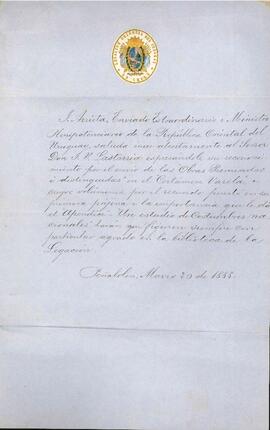 J. Arrieta, Enviado Estraordinario i Ministro
Plenipotenciario de la República Oriental del
Uruguay, saluda mui atentamente al Señor
Don J. V. Lastarria espresándole su reconoci
miento por el envío de las Obras Premiadas
o distinguidas en el Certamen Varela,
cuyo volumen por el recuerdo puesto en su
primera página i la importancia que le dá
el Apéndice - Un estudio de Costumbres na
cionales harán que figuren siempre con
particular agrado en la biblioteca de la
Legación.
Peñalolen, Marzo 20 de 1888.